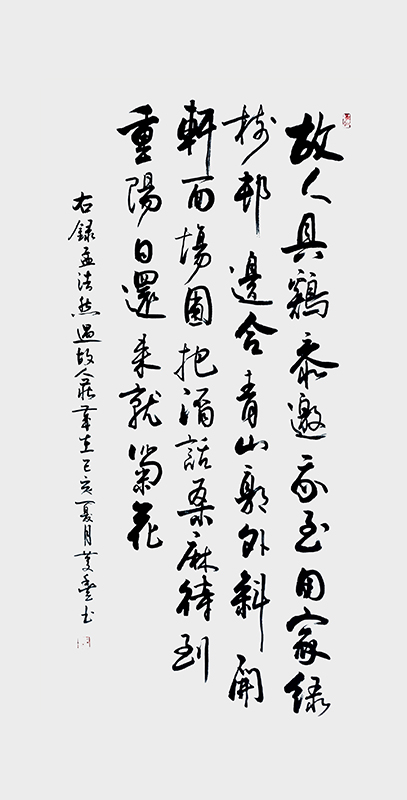 故人具鷄黍邀我至田家綠
樹邨邊合青山郭外斜開
軒面場圃把酒話桑麻待到
重陽日還來就菊花
右錄孟浩然過故人莊 歲在己亥夏月 書